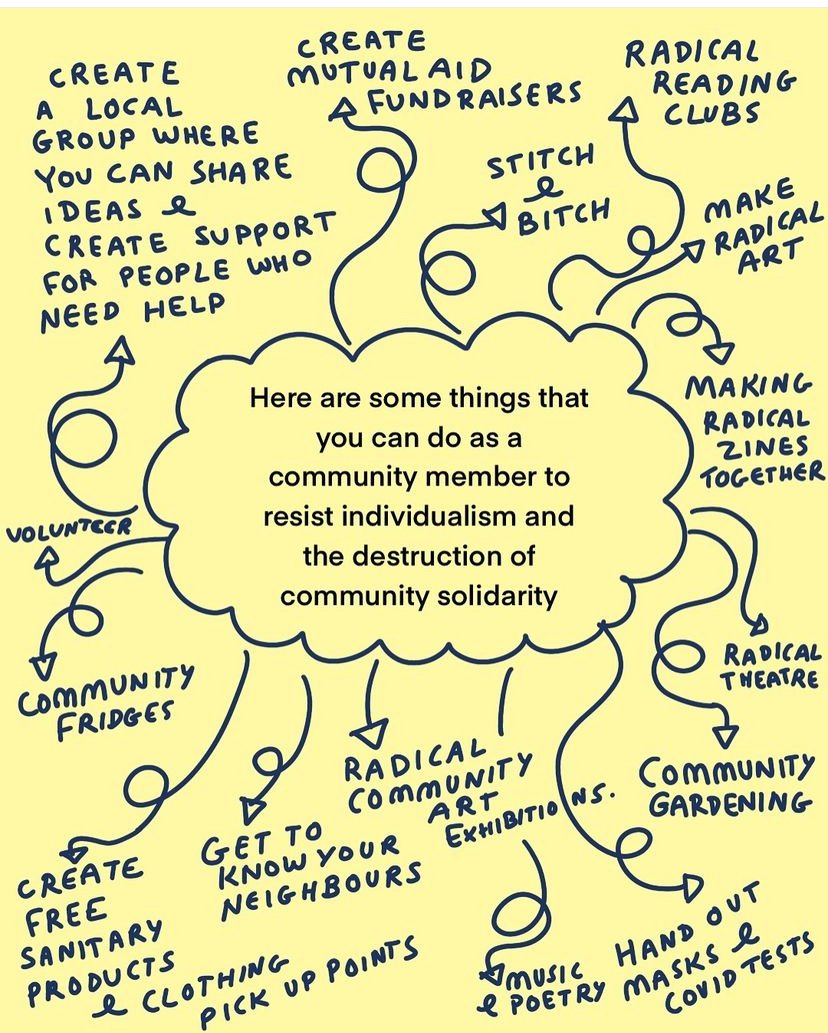 CREATE
A LOCAL
GROUP WHERE
YOU CAN SHARE
IDEAS &
CREATE SUPPORT
FOR PEOPLE WHO
NEED HELP
CREATE
MUTUAL AID
FUNDRAISERS
STITCH
&
BITCH
RADICAL
READING
CLUBS
MAKE
RADICAL
ART
MAKING
RADICAL
ZINES
TOGETHER
Here are some things that
you can do as a
community member to
resist individualism and
the destruction of
community solidarity
VOLUNTEER
COMMUNITY
FRIDGES
RADICAL
THEATRE
COMMUNITY
GARDENING
RADICAL
COMMUNITY
ART
EXHIBITIONS.
GET TO
KNOW YOUR
NEIGHBOURS
CREATE
FREE
SANITARY
PRODUCTS
& CLOTHING
PICK UP POINTS
MUSIC
& POETRY
HAND OUT
MASKS &
COVID TESTS